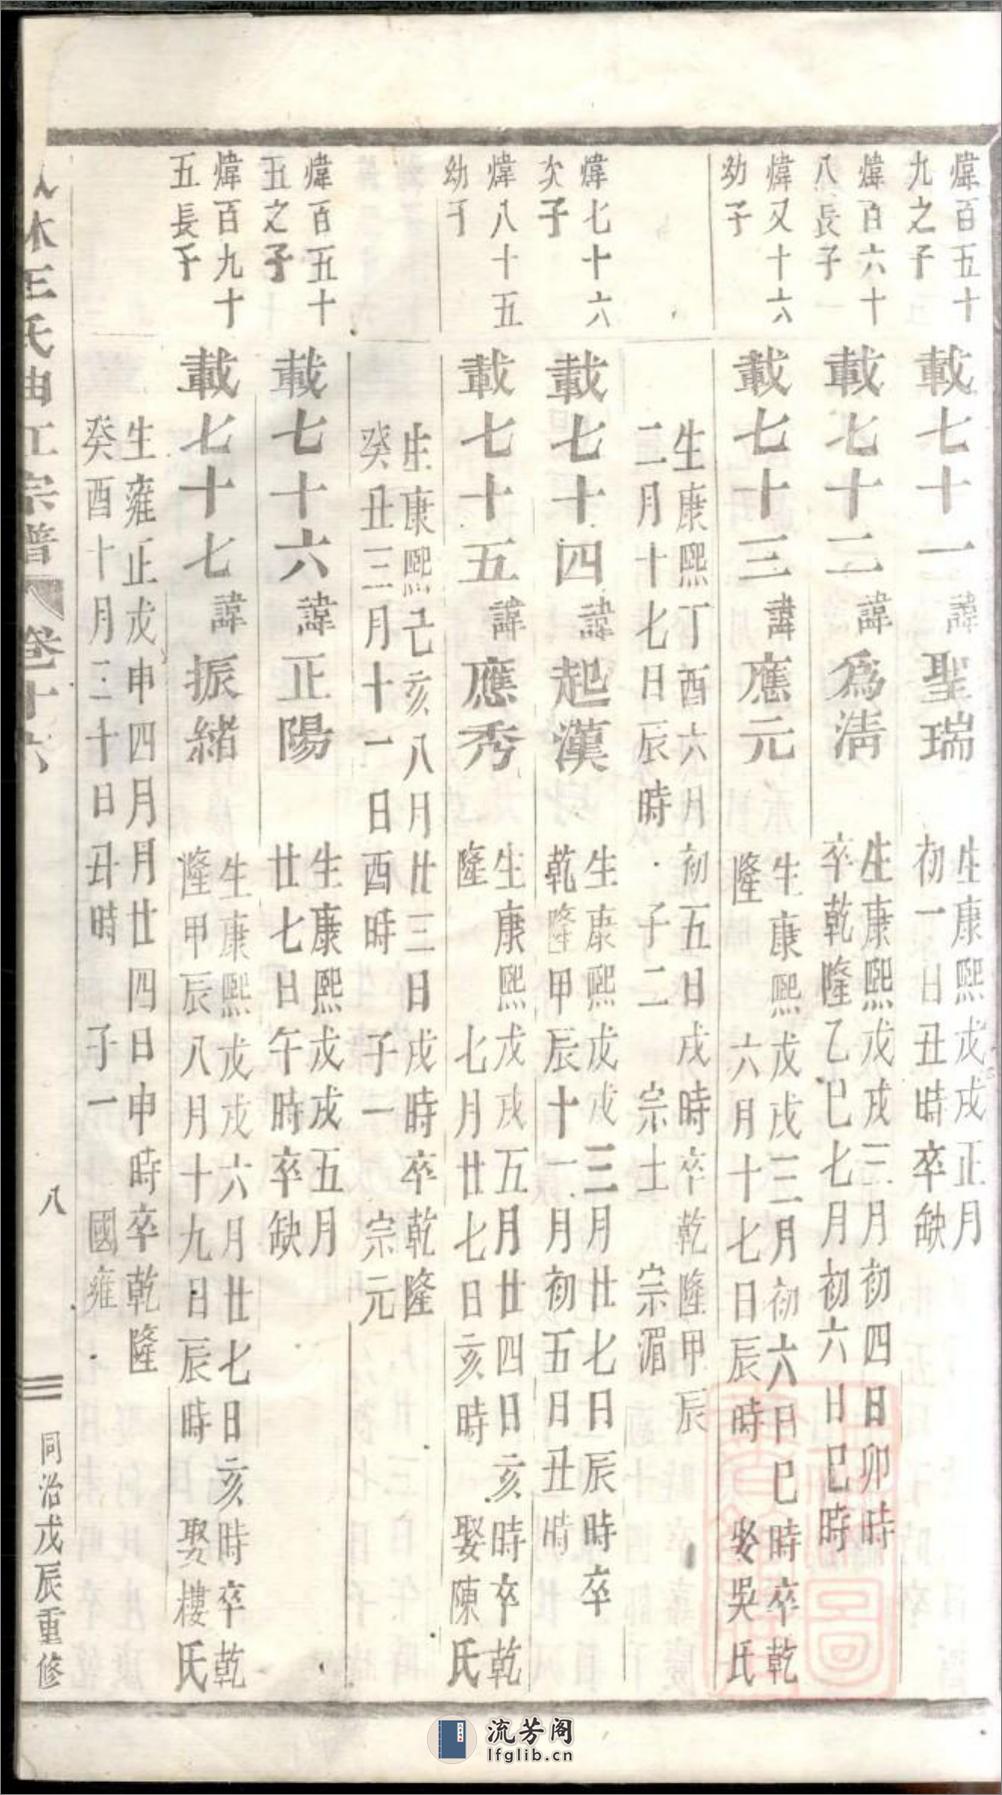 煒百五十
九之子
載七十一 諱聖瑞
生康熙戊戌正月
初一日丑時卒缺
煒百六十
八長子
載七十二 諱為清
生康熙戊戌三月初四日卯時
卒乾隆乙巳七月初六日巳時
煒又十六
幼子
載七十三 諱應元
生康熙戊戌三月初六日巳時卒乾
隆 六月十七日辰時 娶吳氏
生康熙丁酉六月初五日戌時卒乾隆甲辰
二月十七日辰時 子二 宗土 宗湄
煒七十六
次子
載七十四 諱起漢
生康熙戊戌三月廿七日辰時卒
乾隆甲辰十一月初五日丑時
煒八十五
幼子
載七十五 諱應秀
生康熙戊戌五月廿四日亥時卒乾
隆 七月廿七日亥時 娶陳氏
生康熙己亥八月廿三日戌時卒乾隆
癸丑三月十一日酉時 子一 宗元
煒百五十
五之子
載七十六 諱正陽
生康熙戊戌五月
廿七日午時卒缺
煒百九十
五長子
載七十七 諱振緒
生康熙戊戌六月廿七日亥時卒乾
隆甲辰八月十九日辰時 娶樓氏
生雍正戊申四月月廿四日申時卒乾隆
癸酉十月二十日丑時 子一 國雍
林王氏由工宗譜 卷十六
八
同治戊辰重修
流芳阁
lfglib.cn